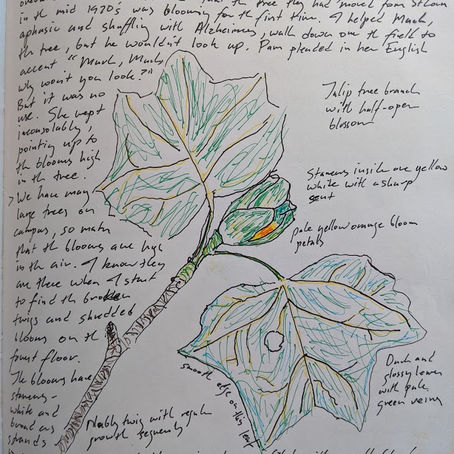 in the mid 1970's was blooming for the first time. I helped Mack,
aphasic and shuffling with Alzheimers, walk down on the field to
the tree, but he wouldn't look up. Pam pleaded in her English
accent "Mack, Mack,
why won't you look?"
But it was no
use. She wept
inconsolably,
pointing up to
the blooms high
in the tree.
> We have many
large trees on
campus, so many
that the blooms are high
in the air. I know they
are there when I start
to find the broken
twigs and shredded
blooms on the
forest floor.
The blooms have
stamens -
white and
broad as
strands
Tulip tree branch
with half-open
blossom
Stamens inside are yellow
white with a sharp
scent
pale yellow orange bloom
petals
smooth edge on this leaf
Dark and
glossy leaves
with pale
green veins
Nobbly twig with regular
growth segments